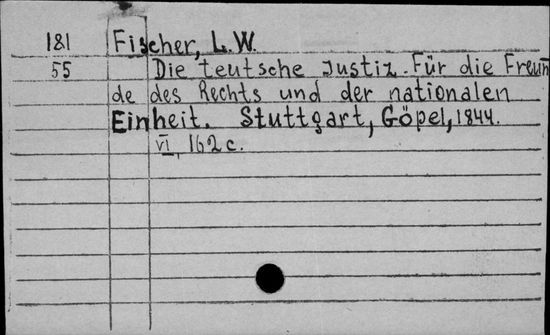 181 Fischer, L.W.
55 Die teutsche Justiz. Für die Freun
de des Rechts und der nationalen
Einheit. Stuttgart, Göpel, 1844.
VI, 162 c.